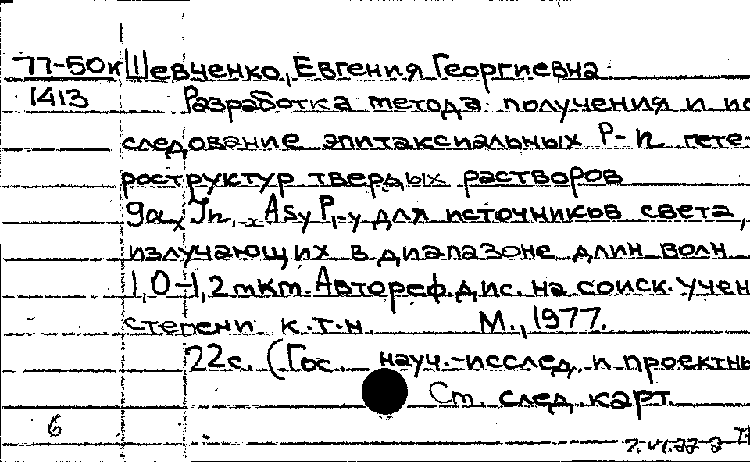 77-50к Шевченко, Евгения Георгиевна
1413 Разработка метода получения и ис
следование эпитаксиальных P-n гете-
роструктур твердых растворов
Gax In1-x AsyP1-y для источников света,
излучающих в диапазоне длин волн
1,0-1,2 мкм. Автореф. дис. на соиск. учен
степени к.т.н. М., 1977.
22с. (Гос. науч.-исслед. и проектны
Ст. след. карт.
6